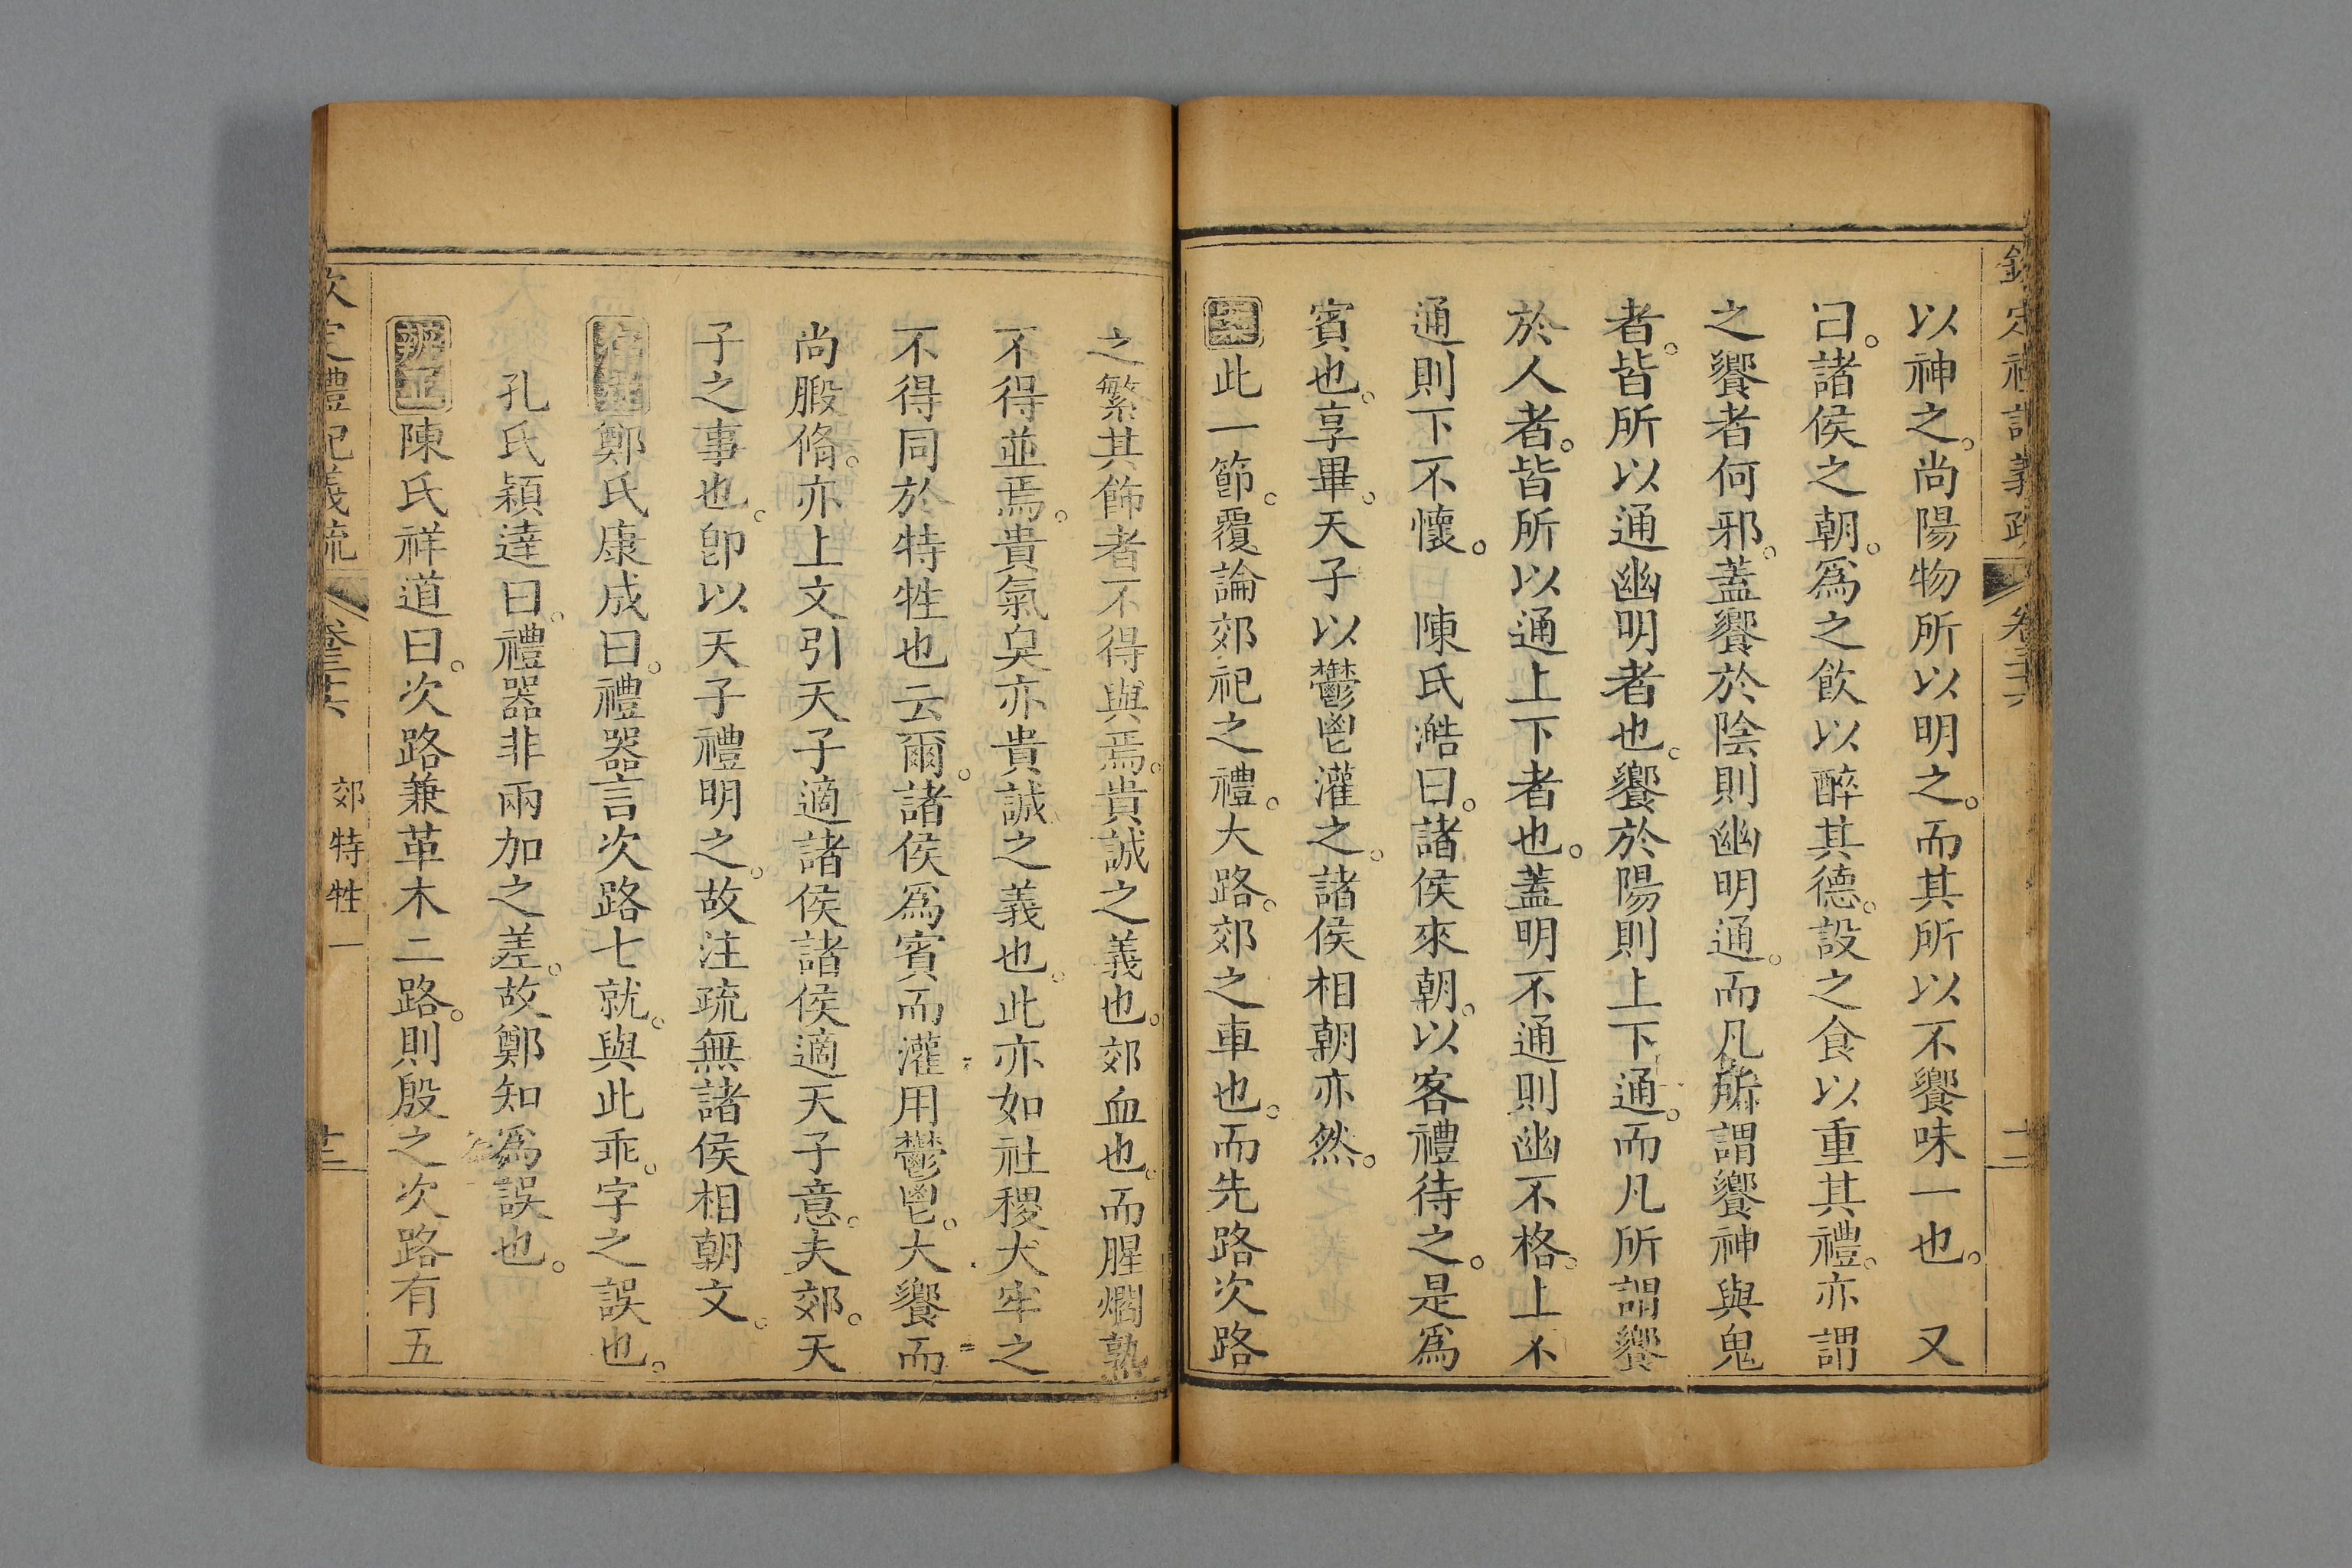 欽定禮記義疏 卷三十六 十二
以神之。尚陽物所以明之。而其所以不饗味一也。　又
曰。諸侯之朝。爲之飲以醉其德。設之食以重其禮。亦謂
之饗者何邪。蓋饗於陰則幽明通。而凡所謂饗神與鬼
者。皆所以通幽明者也。饗於陽則上下通。而凡所謂饗
於人者。皆所以通上下者也。蓋明不通則幽不格。上不
通則下不懷。　陳氏澔曰。諸侯來朝。以客禮待之。是爲
賓也。享畢。天子以鬱鬯灌之。諸侯相朝亦然。
案此一節。覆論郊祀之禮。大路。郊之車也。而先路次路
之繁其飾者不得與焉。貴誠之義也。郊血也。而腥爓熟
不得並焉。貴氣臭亦貴誠之義也。此亦如社稷大牢之
不得同於特牲也云爾。諸侯爲賓而灌用鬱鬯。大饗而
尚腶脩。亦上文引天子適諸侯諸侯適天子意。夫郊。天
子之事也。卽以天子禮明之。故注疏無諸侯相朝文。
存疑鄭氏康成曰。禮器言次路七就。與此乖。字之誤也。
孔氏穎達曰。禮器非兩加之差。故鄭知爲誤也。
辨正陳氏祥道曰。次路兼革木二路。則殷之次路有五
欽定禮記義疏 卷三十六 郊特牲一 十三